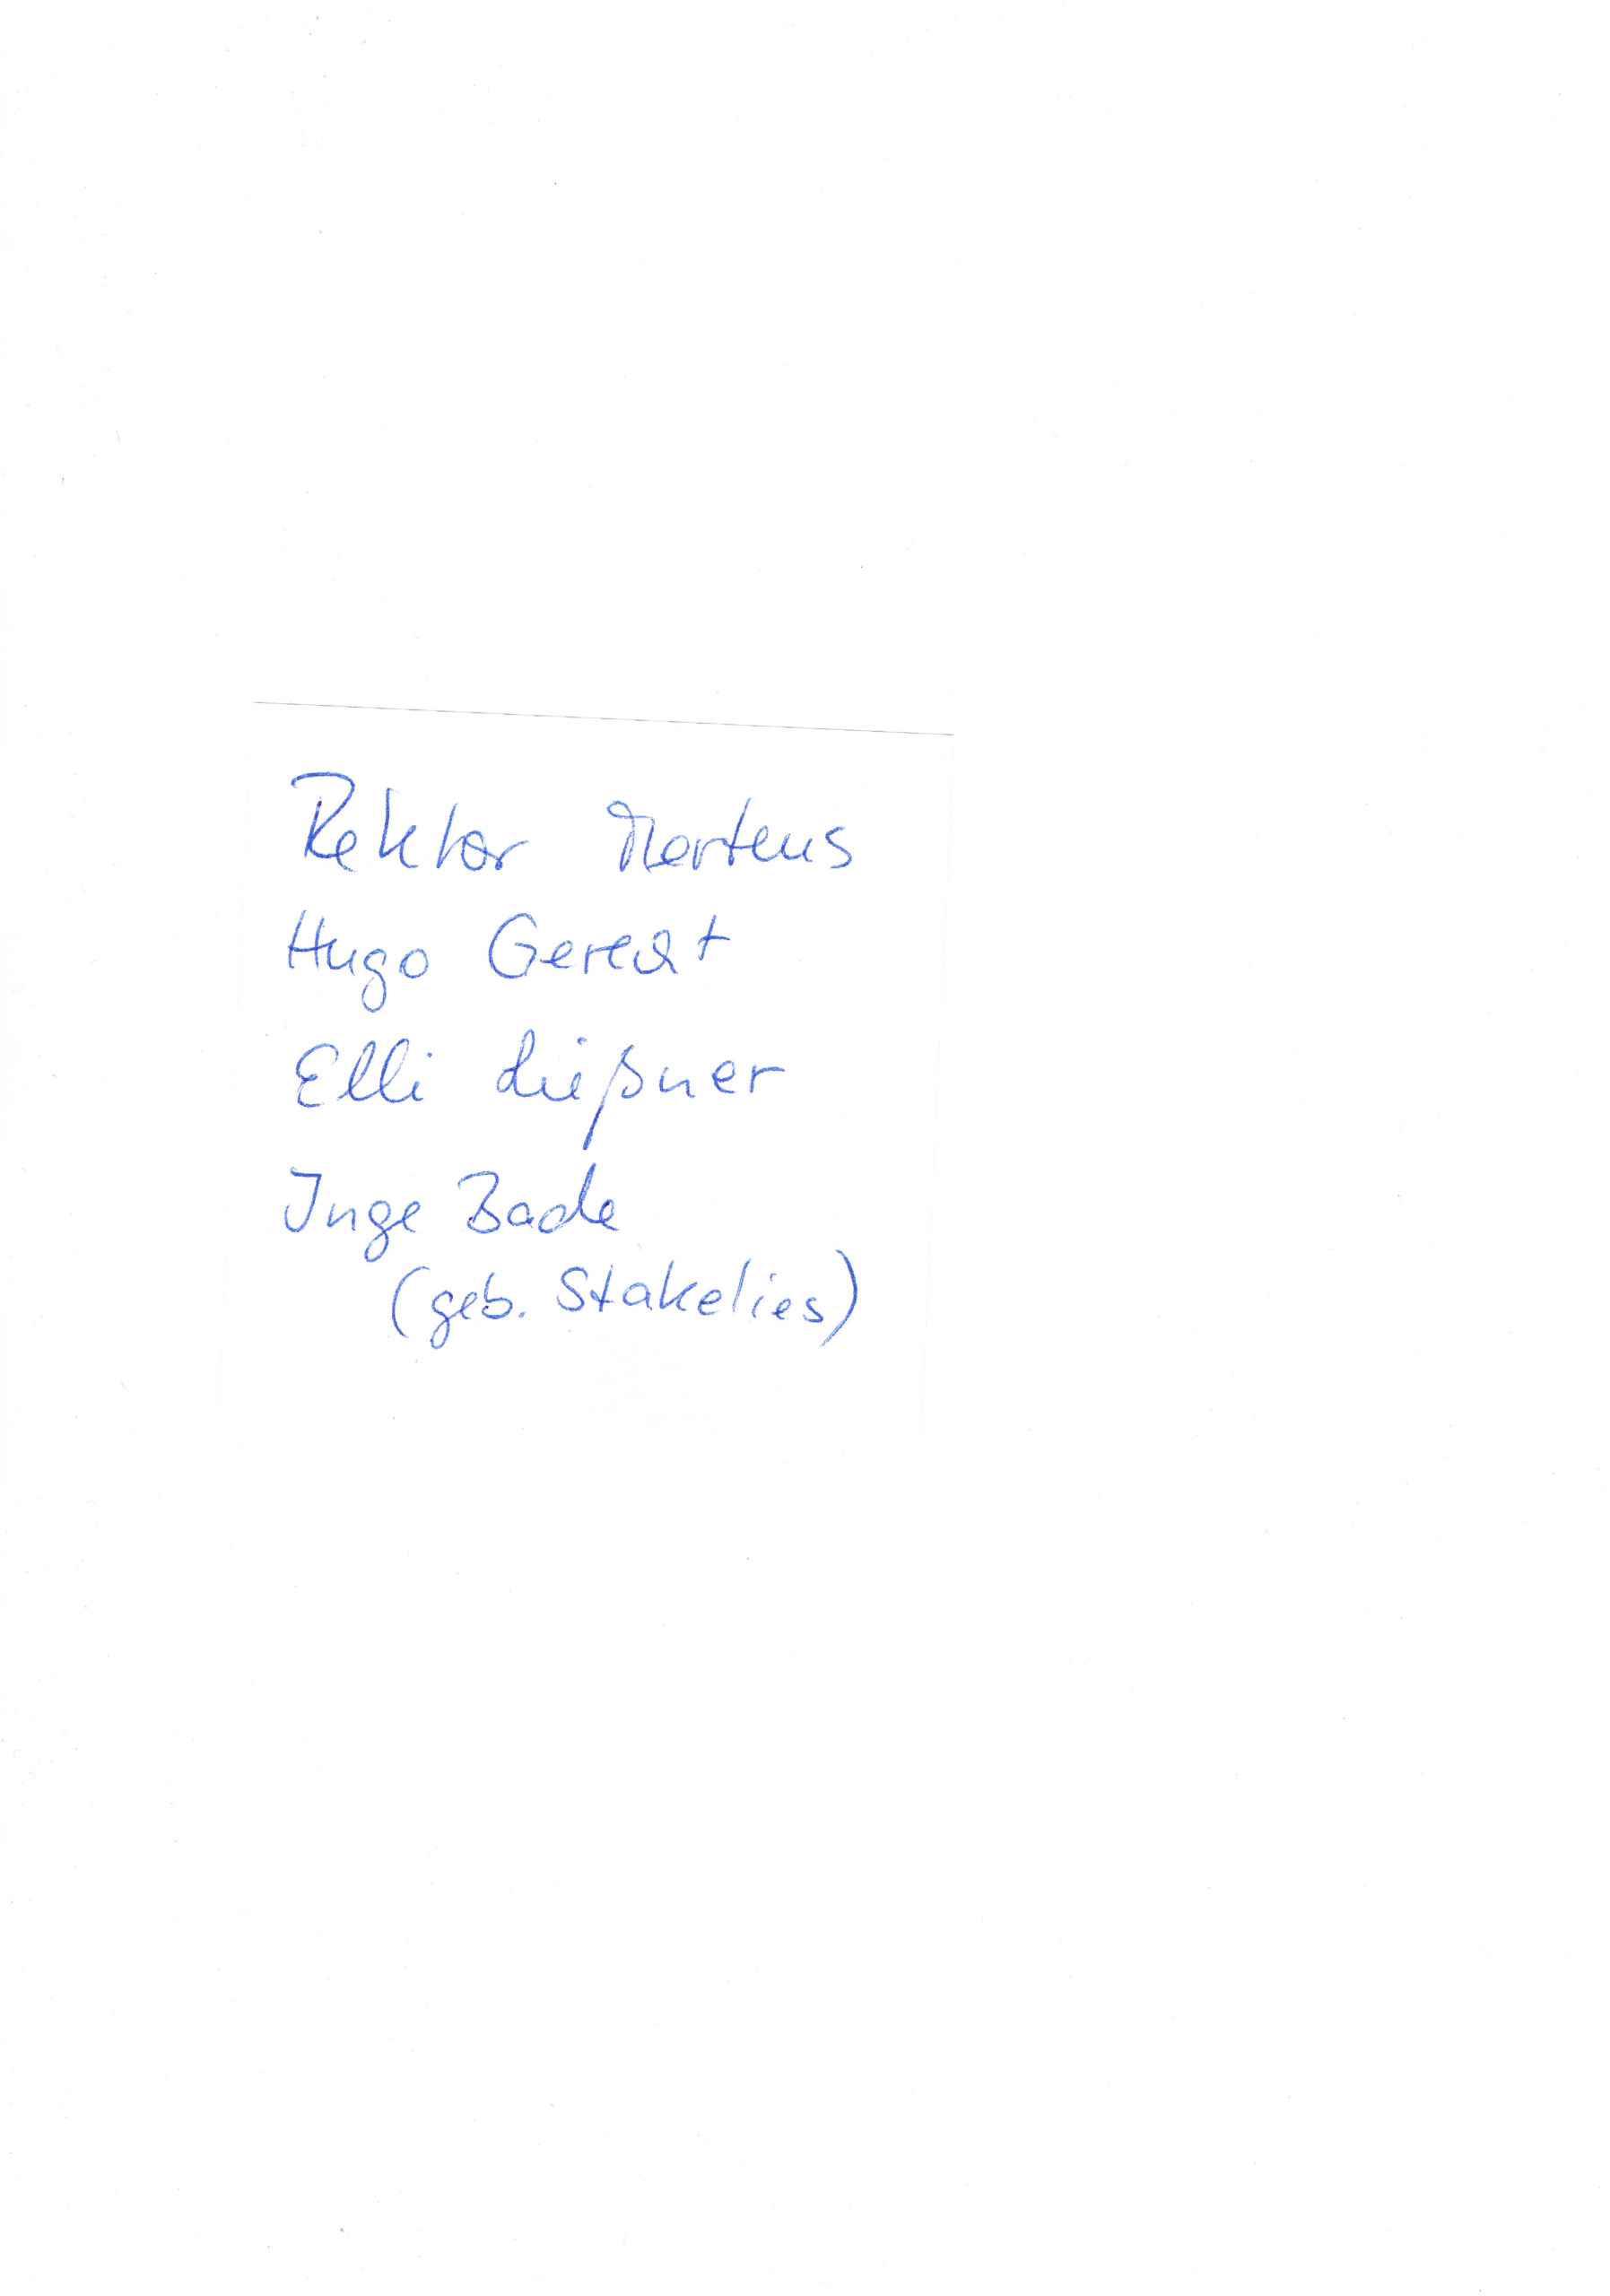 Rektor Mertens
Hugo Gerecht
Elli
Inge Bade
(geb. Stakelies)